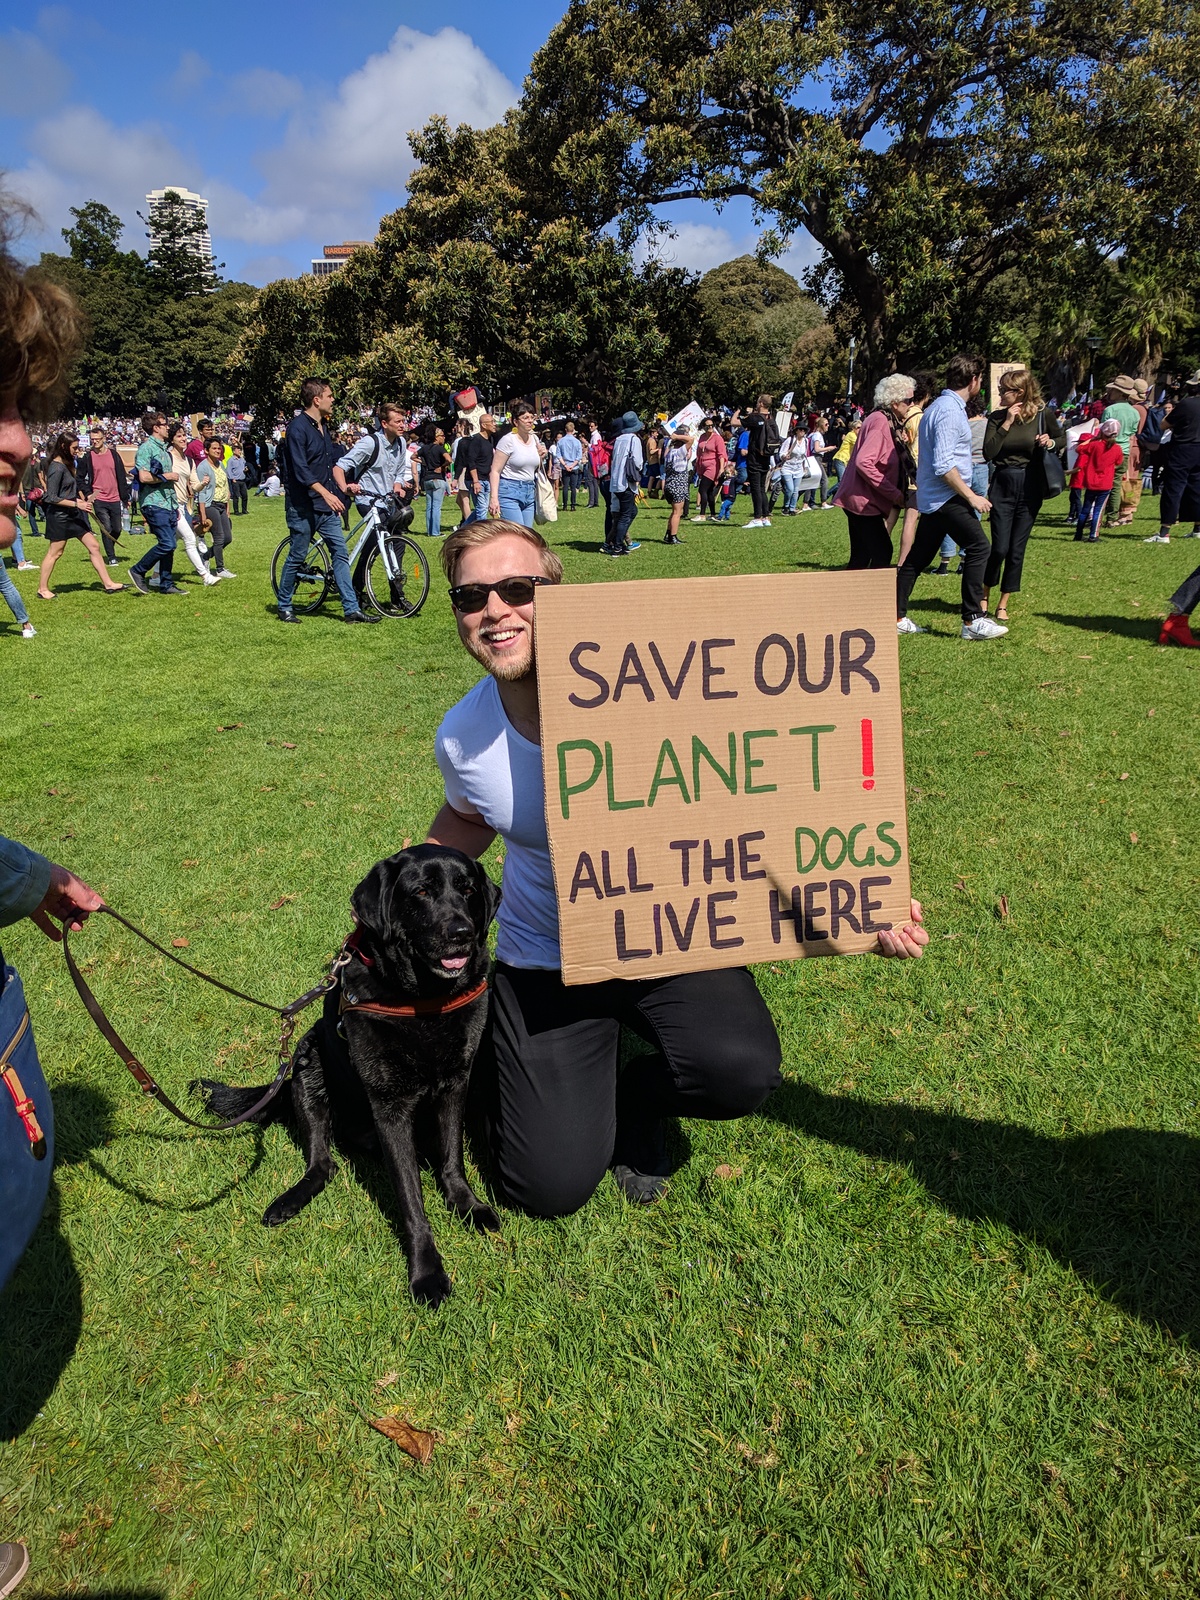 SAVE OUR
PLANET!
ALL THE DOGS
LIVE HERE